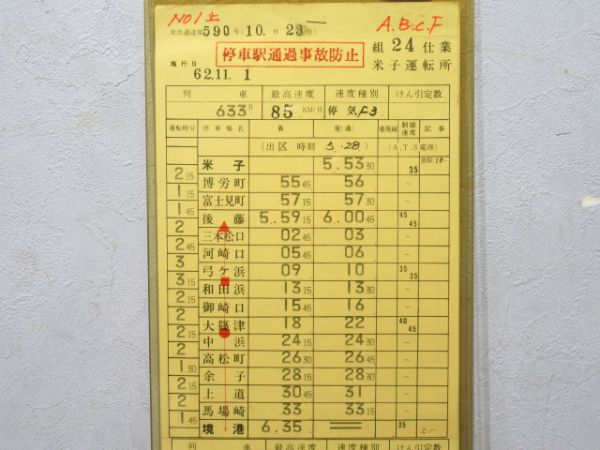 No1上 A.B.C.F
米共通達第590号(10.月29日)
停車駅通過事故防止 組 24 仕業
施行日 62.11. 1 米子運転所
列 車 最高速度 速度種別 けん引定数
633D 85 KM/H 停気F3
運転時分 停車場名 着 発(通) 着発線 制限速度 記事
(出区 時刻 5.28) (A.T.S電源)
米子 5.53 30 35
2 15 博労町 55 45 56
1 15 富士見町 57 15 57 30
1 45 後藤 5.59 15 6.00 45 45 45
2 三本松口 02 45 03
2 河崎口 05 45 06
3 弓ケ浜 09 10 35 35
3 15 和田浜 13 15 13 30
2 御崎口 15 45 16
2 大篠津 18 22 40 45
2 15 中浜 24 15 24
2 高松町 26 30 26
2 余子 28 15 28 30
2 上道 30 45 31
2 馬場崎 33 33 15
1 45 境港 6.35 35
列 車 最高速度 速度種別 けん引定数